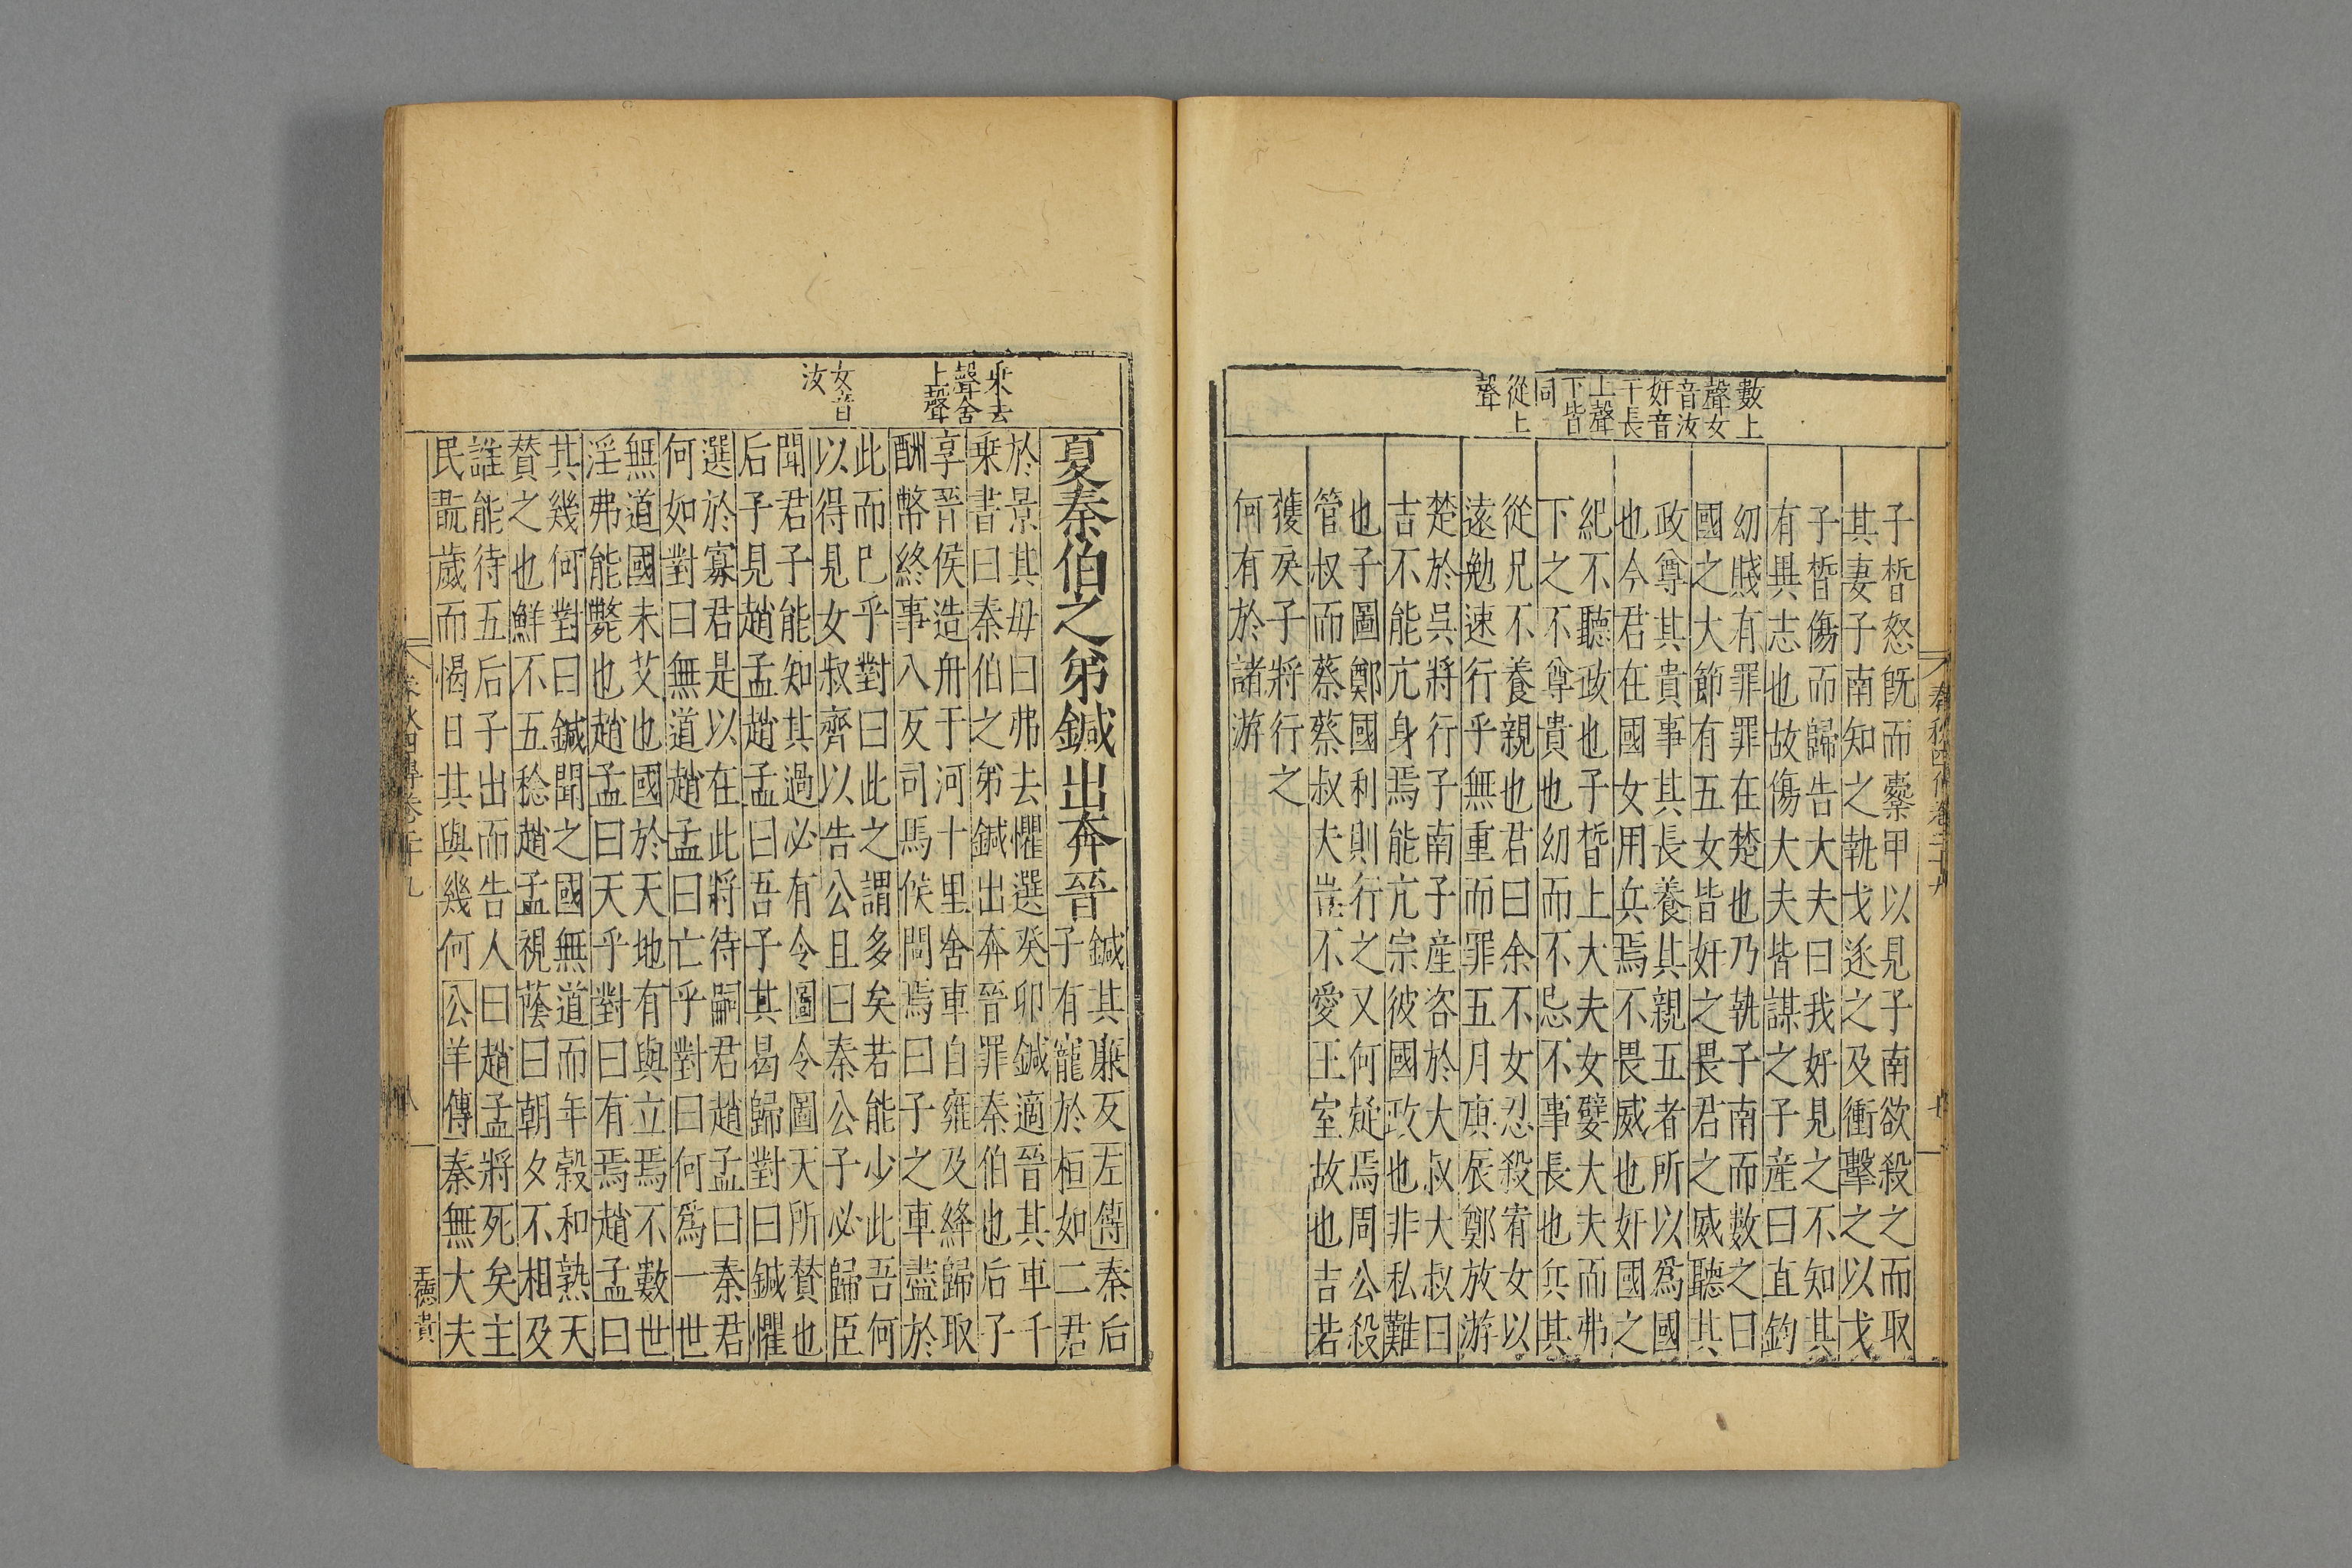 數上
聲女
音汝
奸音
干長
上聲
下皆
同
從上
聲
春秋四傳卷二十九 七
子晳怒旣而櫜甲以見子南欲殺之而取
其妻子南知之執戈逐之及衝擊之以戈
子晳傷而歸告大夫曰我好見之不知其
有異志也故傷大夫皆謀之子產曰直鈞
幼賤有罪罪在楚也乃執子南而數之曰
國之大節有五女皆奸之畏君之威聽其
政尊其貴事其長養其親五者所以爲國
也今君在國女用兵焉不畏威也奸國之
紀不聽政也子晳上大夫女嬖大夫而弗
下之不尊貴也幼而不忌不事長也兵其
從兄不養親也君曰余不女忍殺宥女以
遠勉速行乎無重而罪五月庚辰鄭放游
楚於吳將行子南子產咨於大叔大叔曰
吉不能亢身焉能亢宗彼國政也非私難
也子圖鄭國利則行之又何疑焉周公殺
管叔而蔡蔡叔夫豈不愛王室故也吉若
獲戾子將行之
何有於諸游
乘去
聲舍
上聲
女音
汝
夏秦伯之弟鍼出奔晉
鍼其廉反左傳秦后
子有寵於桓如二君
於景其母曰弗去懼選癸卯鍼適晉其車千
乘書曰秦伯之弟鍼出奔晉罪秦伯也后子
享晉侯造舟于河十里舍車自雍及絳歸取
酬幣終事八反司馬侯問焉曰子之車盡於
此而已乎對曰此之謂多矣若能少此吾何
以得見女叔齊以告公且曰秦公子必歸臣
聞君子能知其過必有令圖令圖天所贊也
后子見趙孟趙孟曰吾子其曷歸對曰鍼懼
選於寡君是以在此將待嗣君趙孟曰秦君
何如對曰無道趙孟曰亡乎對曰何爲一世
無道國未艾也國於天地有與立焉不數世
淫弗能斃也趙孟曰天乎對曰有焉趙孟曰
其幾何對曰鍼聞之國無道而年穀和熟天
贊之也鮮不五稔趙孟視蔭曰朝夕不相及
誰能待五后子出而告人曰趙孟將死矣主
民翫歲而愒日其與幾何公羊傳秦無大夫
春秋四傳卷二十九 八 王德貴